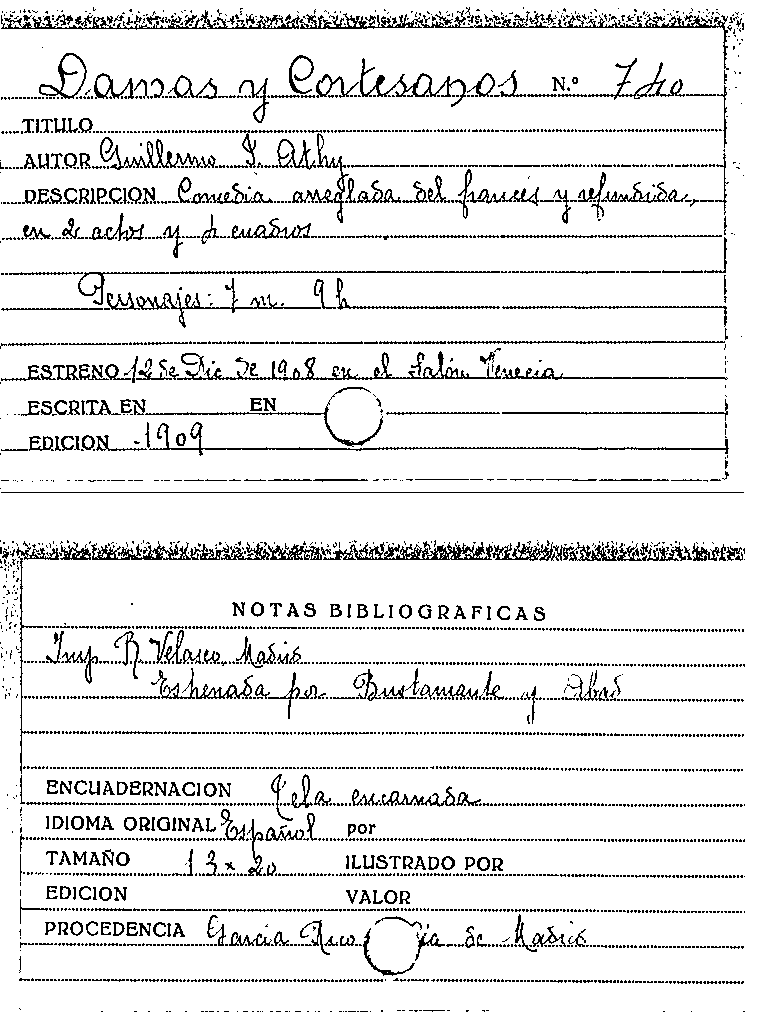 Damas y Cortesanos N.º 740
TITULO
AUTOR Guillermo J. Athy
DESCRIPCION Comedia arreglada del francés y refundida,
en 2 actos y 4 cuadros
Personajes: 7 m. 9 h
ESTRENO 12 de Dic de 1908 en el Salón Venecia
ESCRITA EN EN
EDICION -1909
NOTAS BIBLIOGRAFICAS
Imp R Velasco Madrid
Estrenada por Bustamante y Abad
ENCUADERNACION Tela encarnada
IDIOMA ORIGINAL Español por
TAMAÑO 13 x 20 ILUSTRADO POR
EDICION VALOR
PROCEDENCIA Garcia Rico de Madrid